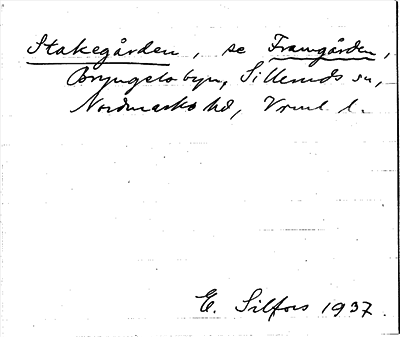 Stakegården, se Framgården,
Bryngelsbyn, Silleruds sn,
Nordmarks hd, Vrml. l.
E. Silfors 1937.